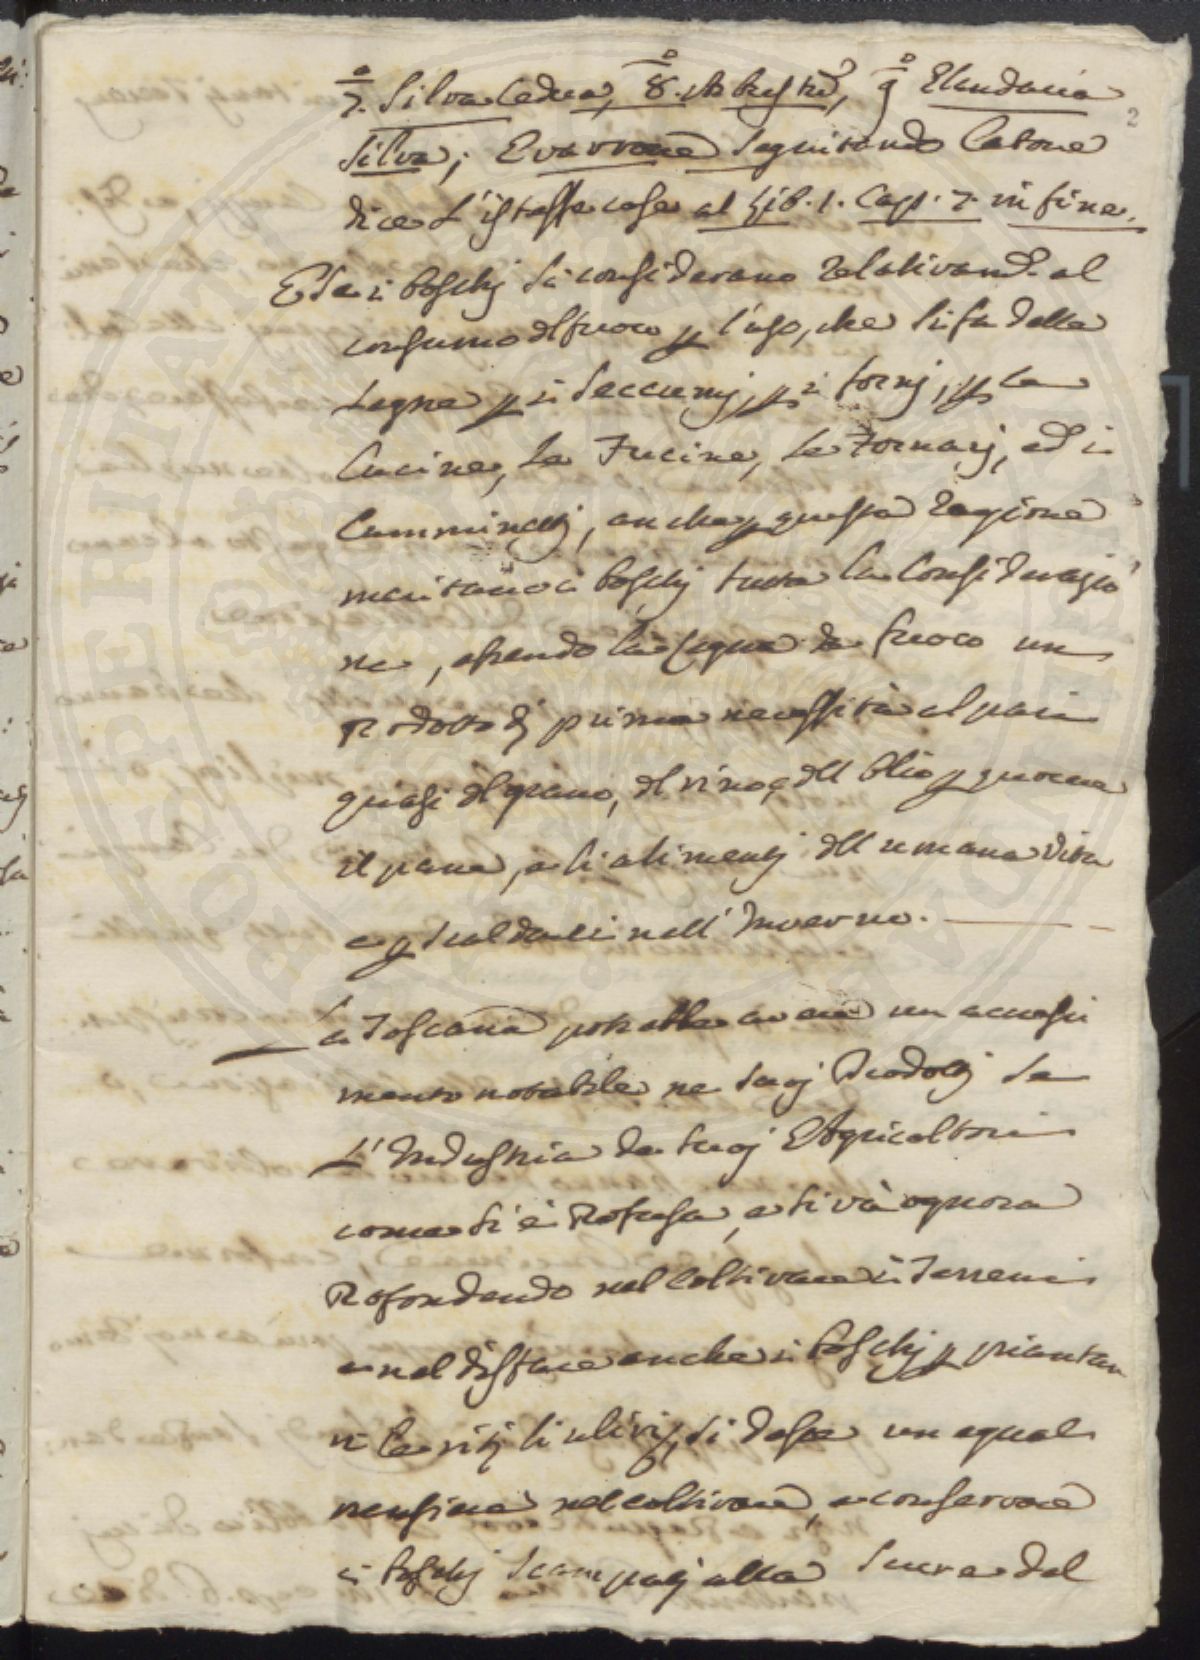 2
7.º Silva Cedua, 8.º Arbustũ, 9.º Glandaria
Silva; e Varrone seguitando Catone
dice l'istesse cose al Lib. 1. Cap. 7. in fine.
E se i boschj si considerano relativamte. al
consumo del fuoco p l'uso, che si fa delle
Legne p i seccatoj, p i fornj, p le
Cucine, le Fucine, le Fornacj, ed i
Camminettj, anche p questa ragione
meritano i boschj tutta la considerazio
ne, essendo la legna da fuoco un
Prodotto dj prima necessità al pari
quasi del grano, del vino, e dell'olio p quocere
il pane, e li alimentj dell'umana vita
e p scaldarci nell'Inverno.
La Toscana potrebbe avere un accresci
mento notabile ne suoj Prodottj se
L'Industria de suoj Agricoltori
come si è Profusa, e si và ognora
Profondendo nel coltivare i Terreni
e nel disfare anche i boschj p piantar
vi le vitj li ulivj, si desse un egual
pensiere nel coltivare, e conservare
i boschj scampatj alla scure del
PROSPERITATI